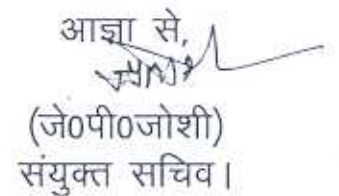 आज्ञा से,
(जे0पी0जोशी)
संयुक्त सचिव।